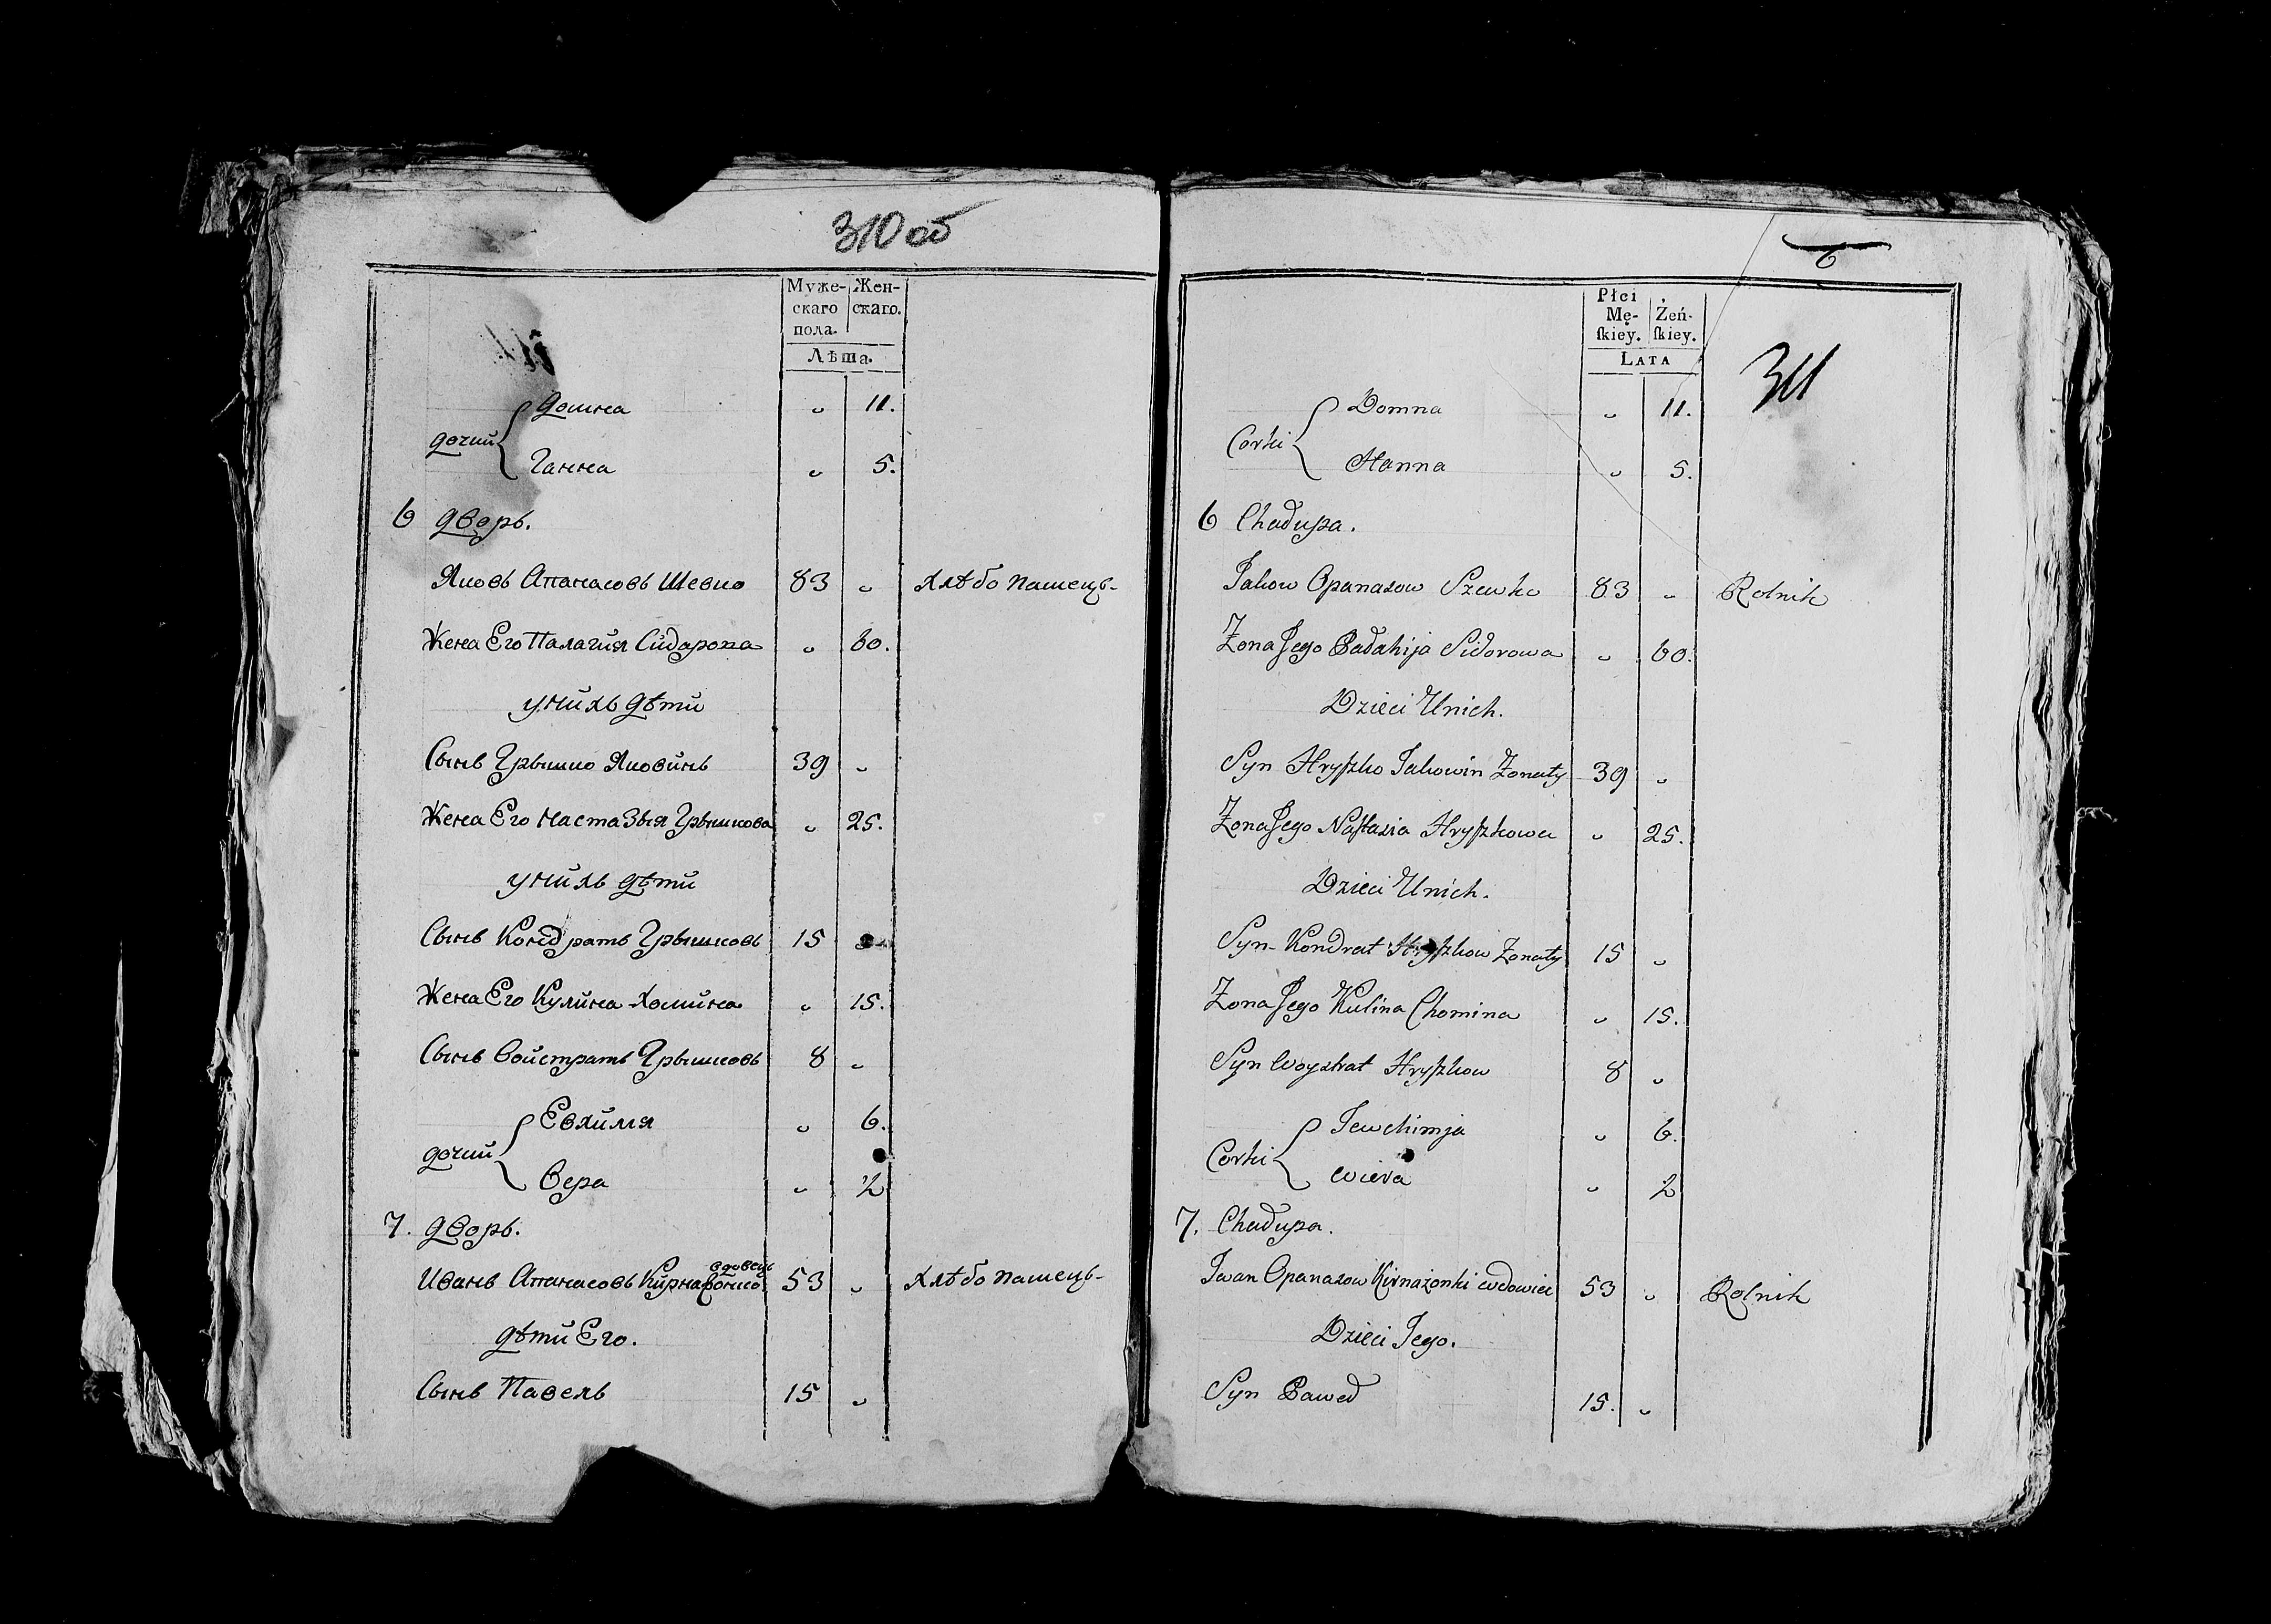 310 об
Муже-
скаго
пола.
Жен-
скаго.
Лѣта.
дочки
Домна " 11.
Ганна " 5.
6 дворъ.
Яковъ Апанасовъ Шевко 83 " Хлѣбопашецъ-
Жена Его Палагия Сидарова " 60.
у нихъ дѣти
Сынъ Грышко Яковинъ 39 "
Жена Его Настазыя Грышкова " 25.
у нихъ дѣти
Сынъ Кондратъ Грышковъ 15
Жена Его Кулина Хомина " 15.
Сынъ Войстратъ Грышковъ 8 "
дочки
Евхимя " 6.
Вера " 2
7. дворъ.
вдовецъ
Иванъ Апанасовъ 53 " Хлѣбопашецъ-
дѣти Его.
Сынъ Павелъ 15 "
6
311
Płci
Mę-
ſkiey.
Żeń-
ſkiey.
LATA
Corki
Domna " 11.
Hanna " 5.
6 Chałupa.
Jakow Opanasow Szewko 83 " Rolnik
Żona Jego Pałahija Sidorowa " 60.
Dzieci Unich.
Syn Hryſzko Jakowin Żonaty 39 "
Żona Jego Naſtazia Hryſzkowa " 25.
Dzieci Unich.
Syn Kondrat Hryſzkow Żonaty 15 "
Żona Jego Kulina Chomina " 15.
Syn Woystrat Hryſzkow 8 "
Corki
Jewchimja " 6.
Wiera " 2
7. Chałupa.
Iwan Opanasow Kirnażonki wdowiec 53 " Rolnik
Dzieci Jego.
Syn Paweł 15. "